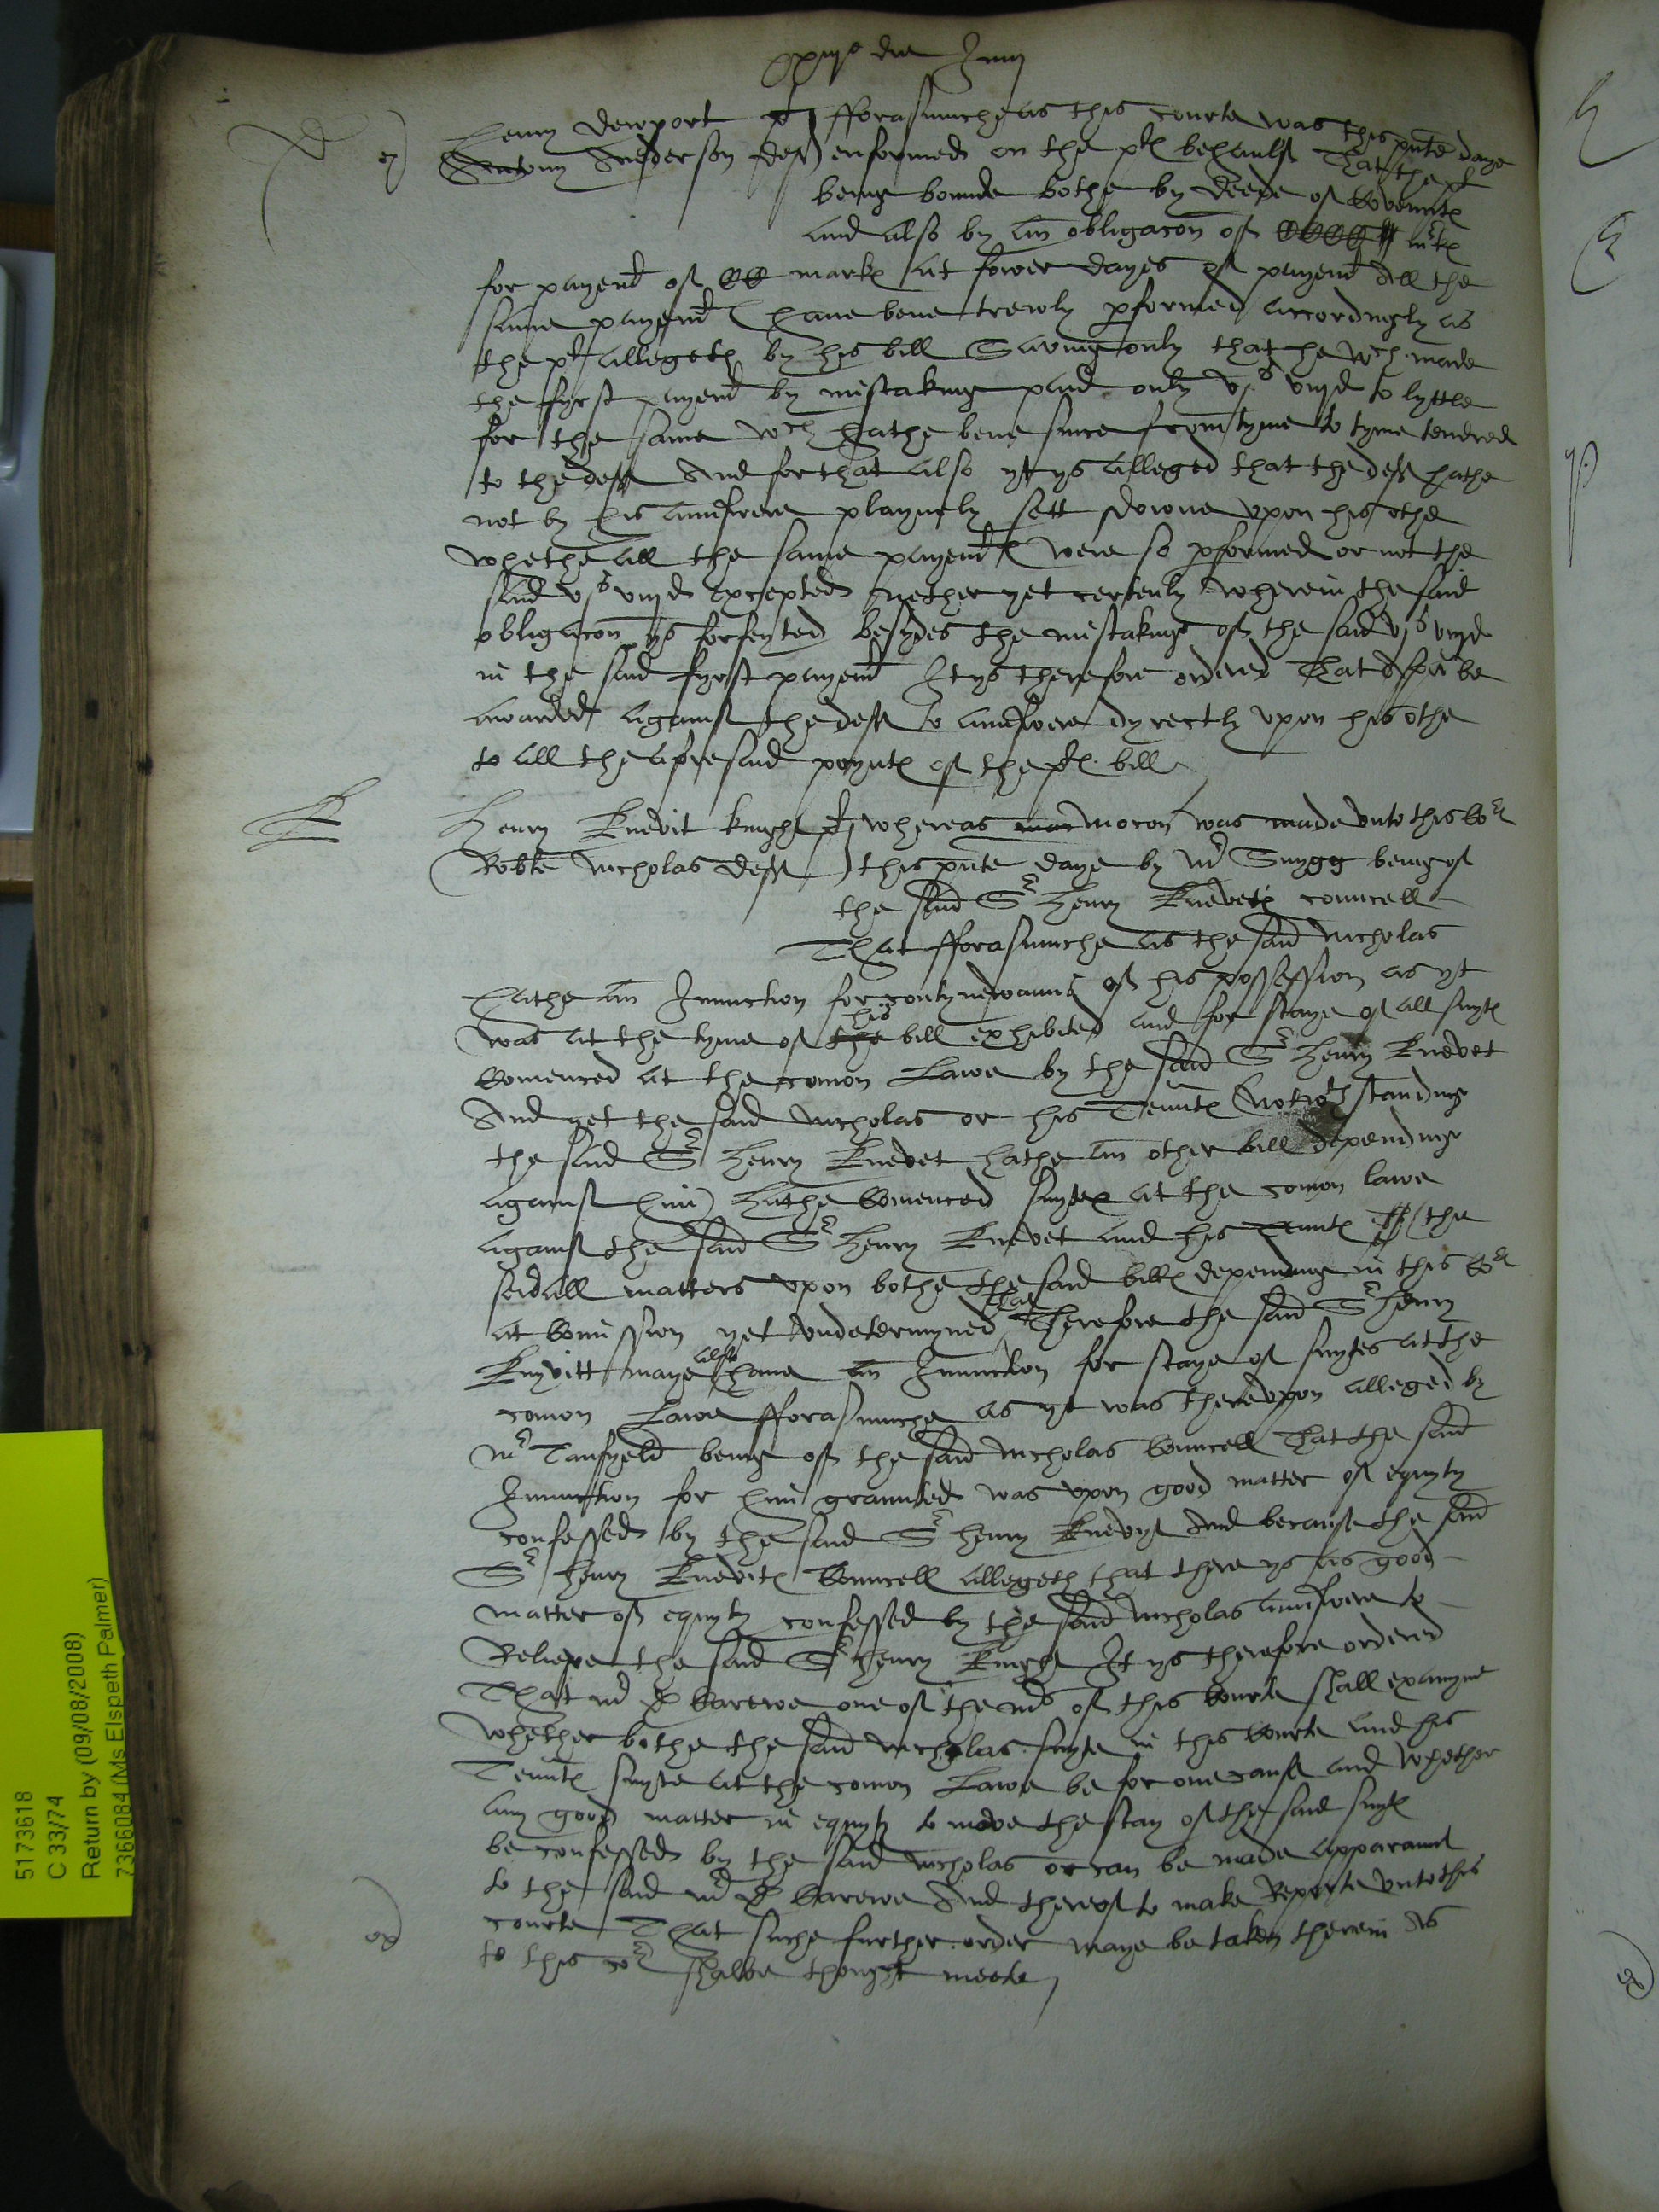 die Junij
Henry Dewport pl fforasmuche as this courte was this pnte daye
Antony Anderson def enformed on the pl behaulf That the pl
being bounde bothe by deede of Covennt
and also by an obligacon of CCCC mrk
for payemt of CC mark at fower dayes of payemt All the
same payemt have bene trewly pformed accordingly as
the pl allegeth by his bill Saving only that he wch made
the fyrst payemt by mistaking paid only vjs viijd to lyttle
for the same wch hathe bene since from tyme to tyme tendred
to the deft And for that also yt ys alleged that the deft hathe
not by his aunswere playnely sett downe upon his othe
whether all the same payemt were so pformed or not the
said vjs viijd excepted nether yet certenly wherein the said
obligacon ys forfeyted besydes the mistaking of the said vjs viijd
in the said fyrst payemt It ys therefore ordered That a spa be
awarded against the deft to aunswere dyrectly upon his othe
to all the aforesaid poynts of the pl bill
Henry Knevit knight pl whereas mocon was made unto this Cort
Robte Nicholas deft this pnte daye by Mr Snygg being of
the said Sr Henry Knevets councell
That fforasmuche as the said Nicholas
hathe an Iniunction for contynewaunce of his possession as yt
was at the tyme of the his bill exhibited and for staye of all suyts
Comenced at the comon Lawe by the said Sr Henry Knevet
And yet the said Nicholas or his Tennts Notwthstanding
the said Sr Henry Knevet hathe an other bill depending
against him hathe Comenced suytes at the comon lawe
against the said Sr Henry Knevet and his tennts the
said all matters upon bothe the said bills depending in this Cort
at Comission yet undetermyned That Therefore the said Sr Henry
Knyvitt maye also have an Iniunction for staye of suytes at the
comon Lawe fforasmuche as yt was thereupon alleged by
Mr Tanfyeld being of the said Nicholas Councell That the said
Iniunction for him graunted was upon good matter of equyty
confessed by the said Sr Henry Knevyt And because the said
Sr Henry Knevits Councell allegeth that there ys as good
matter of equyty confessed by the said Nicholas aunswere to
Releve the said Sr Henry Knight It ys therefore ordered
That Mr D Carewe one of the Mrs of this Courte shall examyne
whether bothe the said Nicholas suyte in this Courte and his
Tennts suyte at the comon Lawe be for one cause and whether
any good matter in equyty to move the stay of the said suyts
be confessed by the said Nicholas or can be made apparaunt
to the said Mr D Carewe And thereof to make Reporte unto this
courte That suche further order maye be taken therein As
to this cort shalbe thought meete
5173618
C 33/74
Return by (09/08/2008)
7366084 (Ms Elspeth Palmer)